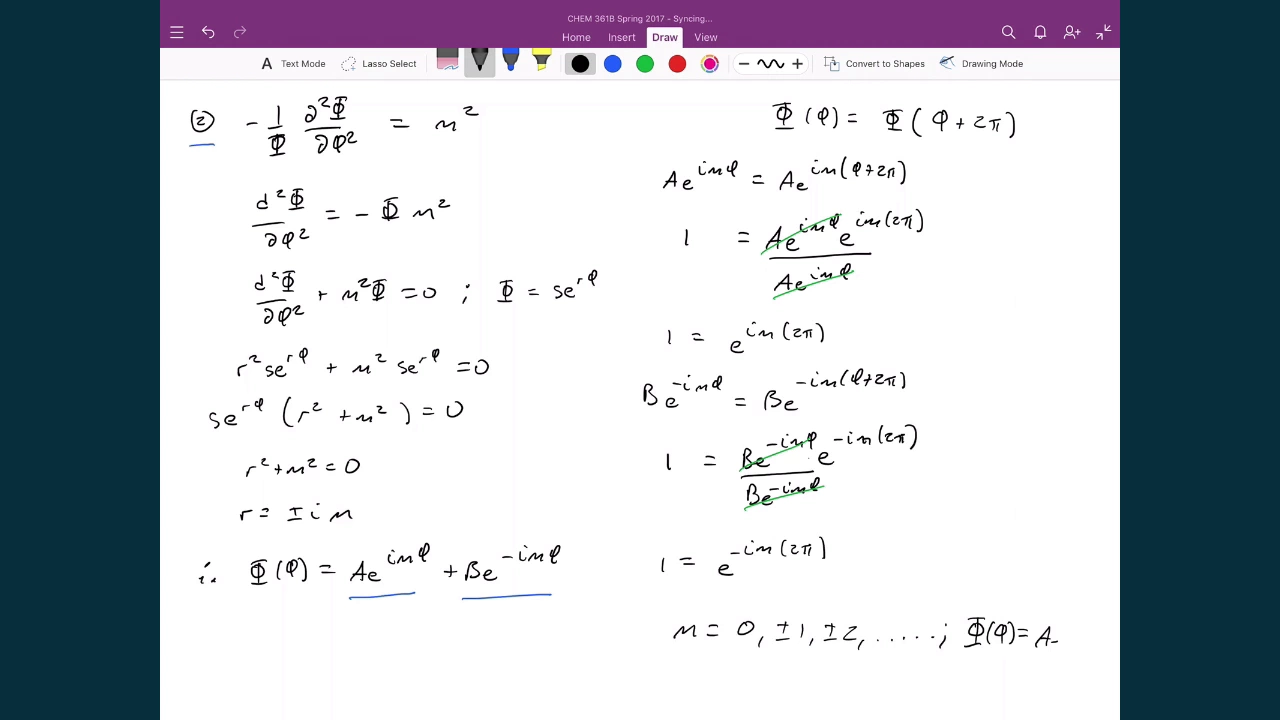 CHEM 361B Spring 2017 - Syncing...
Home Insert Draw View
Text Mode Lasso Select Convert to Shapes Drawing Mode
② - 1/Φ ∂²Φ/∂φ² = m²
d²Φ/∂φ² = - Φ m²
d²Φ/∂φ² + m²Φ = 0 ; Φ = se^{rφ}
r² se^{rφ} + m² se^{rφ} = 0
se^{rφ} (r² + m²) = 0
r² + m² = 0
r = ± i m
∴ Φ(φ) = Ae^{imφ} + Be^{-imφ}
Φ(φ) = Φ(φ + 2π)
Ae^{imφ} = Ae^{im(φ+2π)}
1 = Ae^{imφ} e^{im(2π)} / Ae^{imφ}
1 = e^{im(2π)}
Be^{-imφ} = Be^{-im(φ+2π)}
1 = Be^{-imφ} · e^{-im(2π)} / Be^{-imφ}
1 = e^{-im(2π)}
m = 0, ±1, ±2, .....; Φ(φ) = A